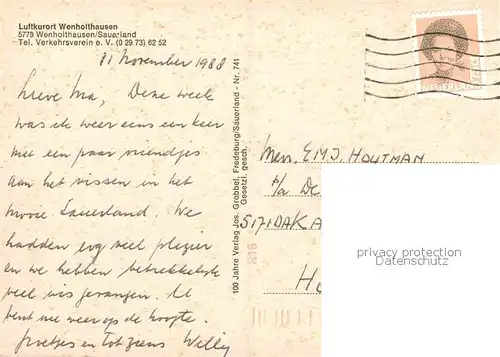 Luftkurort Wenholthausen
5779 Wenholthausen/Sauerland
Tel. Verkehrsverein e. V. (0 29 73) 62 52
11 November 1988
Lieve Ma, Deze week
was ik weer eens een keer
met een paar vriendjes
aan het vissen in het
mooie Sauerland. We
hadden erg veel plezier
en we hebben betrekkelijk
veel vis gevangen. U
bent nu weer op de hoogte.
Groetjes en tot ziens Willy
100 Jahre Verlag Jos. Grobbel, Fredeburg/Sauerland - Nr. 741
Gesetzl. gesch.
NEDERLAND
Mevr. E.M.J. HOUTMAN
p/a De
5171DAKA
privacy protection
Datenschutz